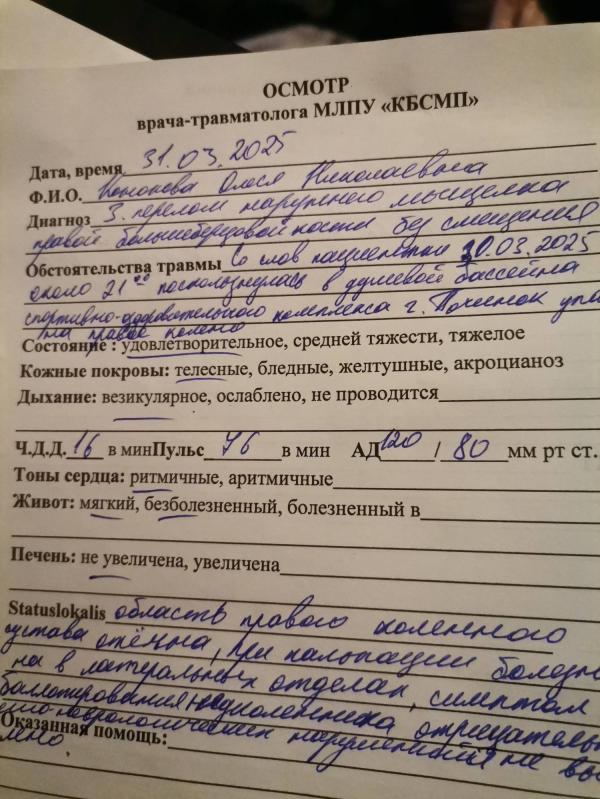 ОСМОТР
врача-травматолога МЛПУ «КБСМП»
Дата, время 31.03.2025
Ф.И.О. Олеся Николаевна
Диагноз З. перелом наружного мыщелка
правой большеберцовой кости без смещения
Обстоятельства травмы Со слов пациентки 30.03.2025
около 21 00 поскользнулась в душевой бассейна
спортивно-оздоровительного комплекса г. Починок упа
ла на правое колено
Состояние : удовлетворительное, средней тяжести, тяжелое
Кожные покровы: телесные, бледные, желтушные, акроцианоз
Дыхание: везикулярное, ослаблено, не проводится
Ч.Д.Д. 16 в минПульс 76 в мин АД 120 / 80 мм рт ст.
Тоны сердца: ритмичные, аритмичные
Живот: мягкий, безболезненный, болезненный в
Печень: не увеличена, увеличена
Statuslokalis область правого коленного
сустава отёчна, при пальпации болезн
на в латеральных отделах, симптом
баллотирования надколенника отрицательн
неврологических нарушений не вы
Оказанная помощь: